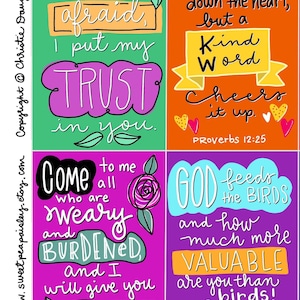 afraid,
I put my
TRUST
in you.
down the heart,
but a
Kind
Word
Cheers
it up.
PROVERBS 12:25
COME to me
all
who are
weary
and
BURDENED,
and I
will give you
GOD feeds
the BIRDS
and how
much more
VALUABLE
are you than
birds!
Copyright © Christie Dau
w.sweetpeapaisley.etsy.com